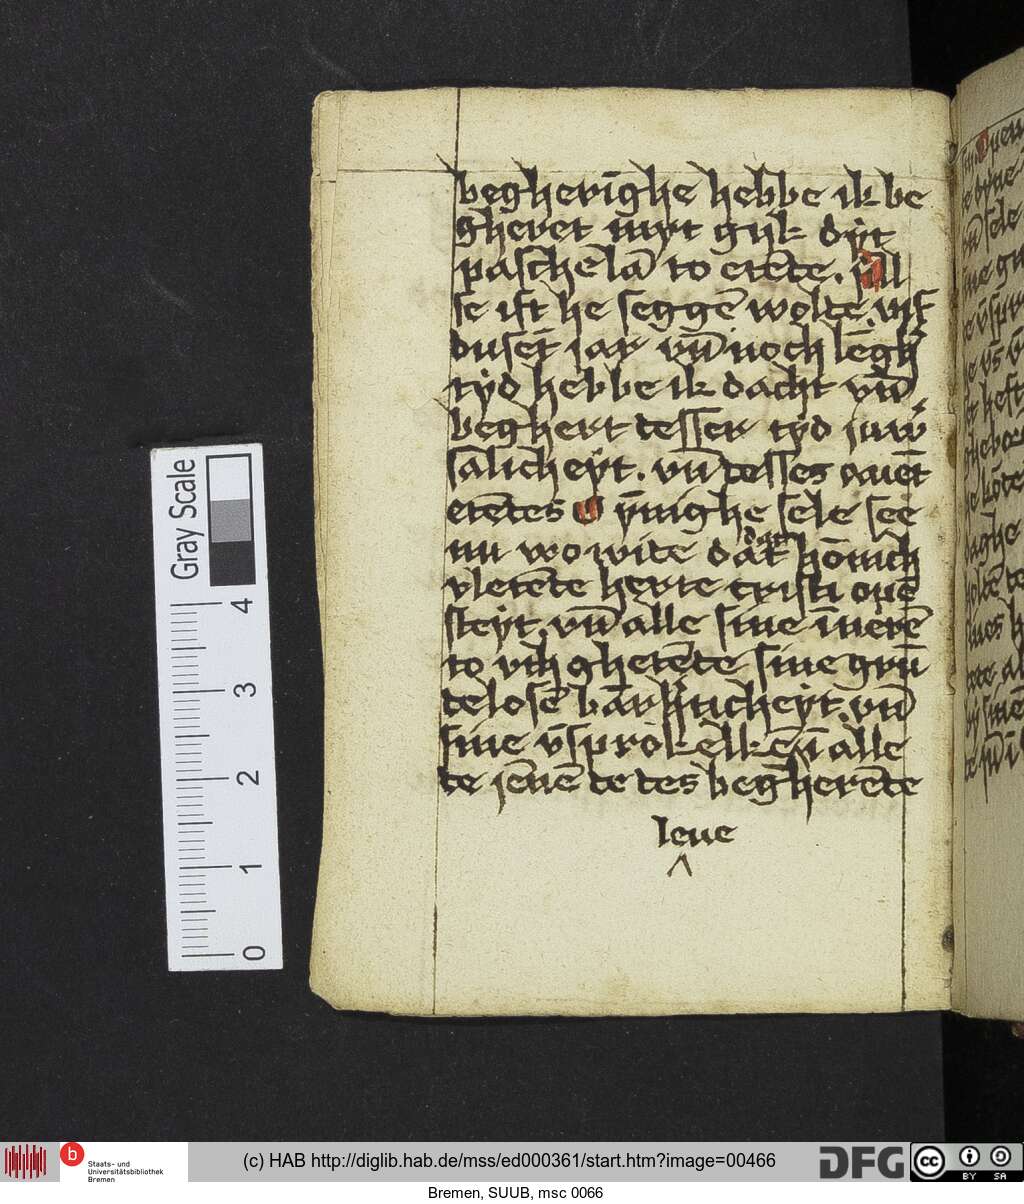 begheri̅ghe hebbe ik be
gheret myt gijk dyt
pasche la̅ to ete̅te. All
se ift he segge̅ wolte. vif
duse̅t jar vn̅ noch le̅gh
tyd hebbe ik dacht vn̅
beghert tesser tyd juw
salicheyt. vn̅ tesses auet
ete̅tes O y̅nighe sele see
nu wo wite dat dat ho̅nich
vlete̅te herte cristi ouē
steyt. vn̅ alle sine i̅nere̅
to vth ghete̅te sine gru̅
telose̅ ba̅r hticheyt. vn̅
sine v̅sprokelke̅ i̅ alle
te je̅ne̅ te tes beghere̅te
leue
Gray Scale
4
3
2
1
0
b
Staats- und
Universitätsbibliothek
Bremen
(c) HAB http://diglib.hab.de/mss/ed000361/start.htm?image=00466
DFG
cc
BY SA
Bremen, SUUB, msc 0066